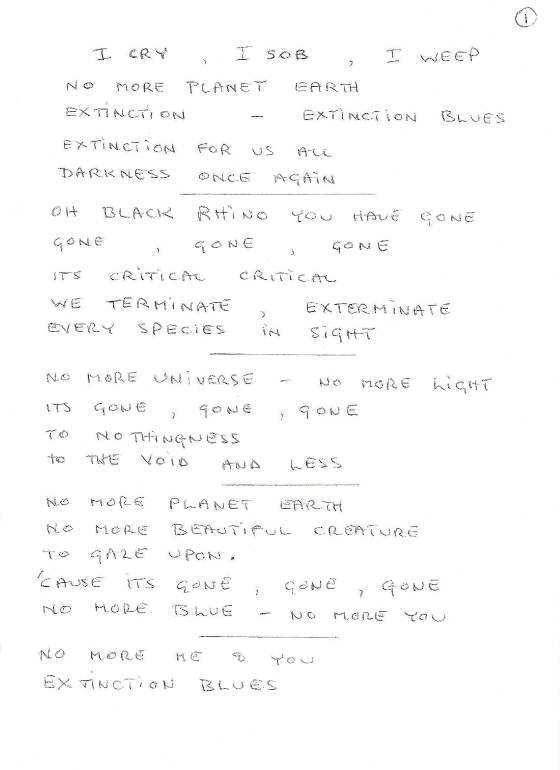 1
I CRY , I SOB , I WEEP
NO MORE PLANET EARTH
EXTINCTION - EXTINCTION BLUES
EXTINCTION FOR US ALL
DARKNESS ONCE AGAIN
OH BLACK RHINO YOU HAVE GONE
GONE , GONE , GONE
ITS CRITICAL CRITICAL
WE TERMINATE , EXTERMINATE
EVERY SPECIES IN SIGHT
NO MORE UNIVERSE - NO MORE LIGHT
ITS GONE , GONE , GONE
TO NOTHINGNESS
to THE VOID AND LESS
NO MORE PLANET EARTH
NO MORE BEAUTIFUL CREATURE
TO GAZE UPON.
'CAUSE ITS GONE , GONE , GONE
NO MORE BLUE - NO MORE YOU
NO MORE ME & YOU
EXTINCTION BLUES